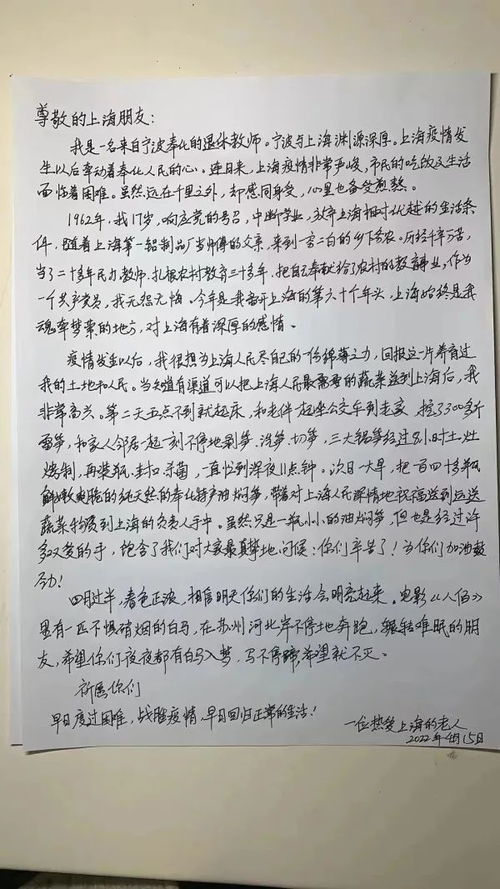 尊敬的上海朋友：
我是一名来自宁波奉化的退休教师。宁波与上海渊源深厚。上海疫情发
生以后牵动着奉化人民的心。连日来，上海疫情非常严峻，市民的吃饭及生活
面临着困难。虽然远在千里之外，却感同身受，心里也备受煎熬。
1962年，我17岁，响应党的号召，中断学业，放弃上海相对优越的生活条
件，随着上海第一铝制品厂当师傅的父亲，来到一穷二白的乡下务农。历经千辛万苦，
当了二十多年民办教师，扎根农村教育三十多年，把自己奉献给了农村的教育事业，作为
一个共产党员，我无怨无悔。今年是我离开上海的第六十个年头，上海始终是我
魂牵梦萦的地方，对上海有着深厚的感情。
疫情发生以后，我很想为上海人民尽自己的一份绵薄之力，回报这一片养育过
我的土地和人民。当知道有渠道可以把上海人民最需要的蔬菜送到上海后，我
非常高兴。第二天五点不到就起床，和老伴一起坐公交车到老家，挖了300多斤
雷笋，和家人邻居一起一刻不停地剥笋、洗笋、切笋，三大锅笋经过几小时土灶
烧制，再装瓶、封口、杀菌，一直忙到深夜11点钟。次日一大早，把一百四十多瓶
鲜嫩爽脆的纯天然的奉化特产油焖笋，带着对上海人民深情地祝福送到运送
蔬菜物资到上海的负责人手中。虽然只是一瓶小小的油焖笋，但也是经过许
多双手的手，饱含了我们对大家最真挚地问候：你们辛苦了！为你们加油鼓
劲！
四月过半，春色正浓，相信明天你们的生活会明亮起来。电影《八佰》
里有一匹不惧硝烟的白马，在苏州河北岸不停地奔跑，辗转难眠的朋
友，希望你们夜夜都有白马入梦，马不停蹄，希望就不灭。
祈愿你们
早日度过困难，战胜疫情，早日回归正常的生活！
一位热爱上海的老人
2022年4月15日